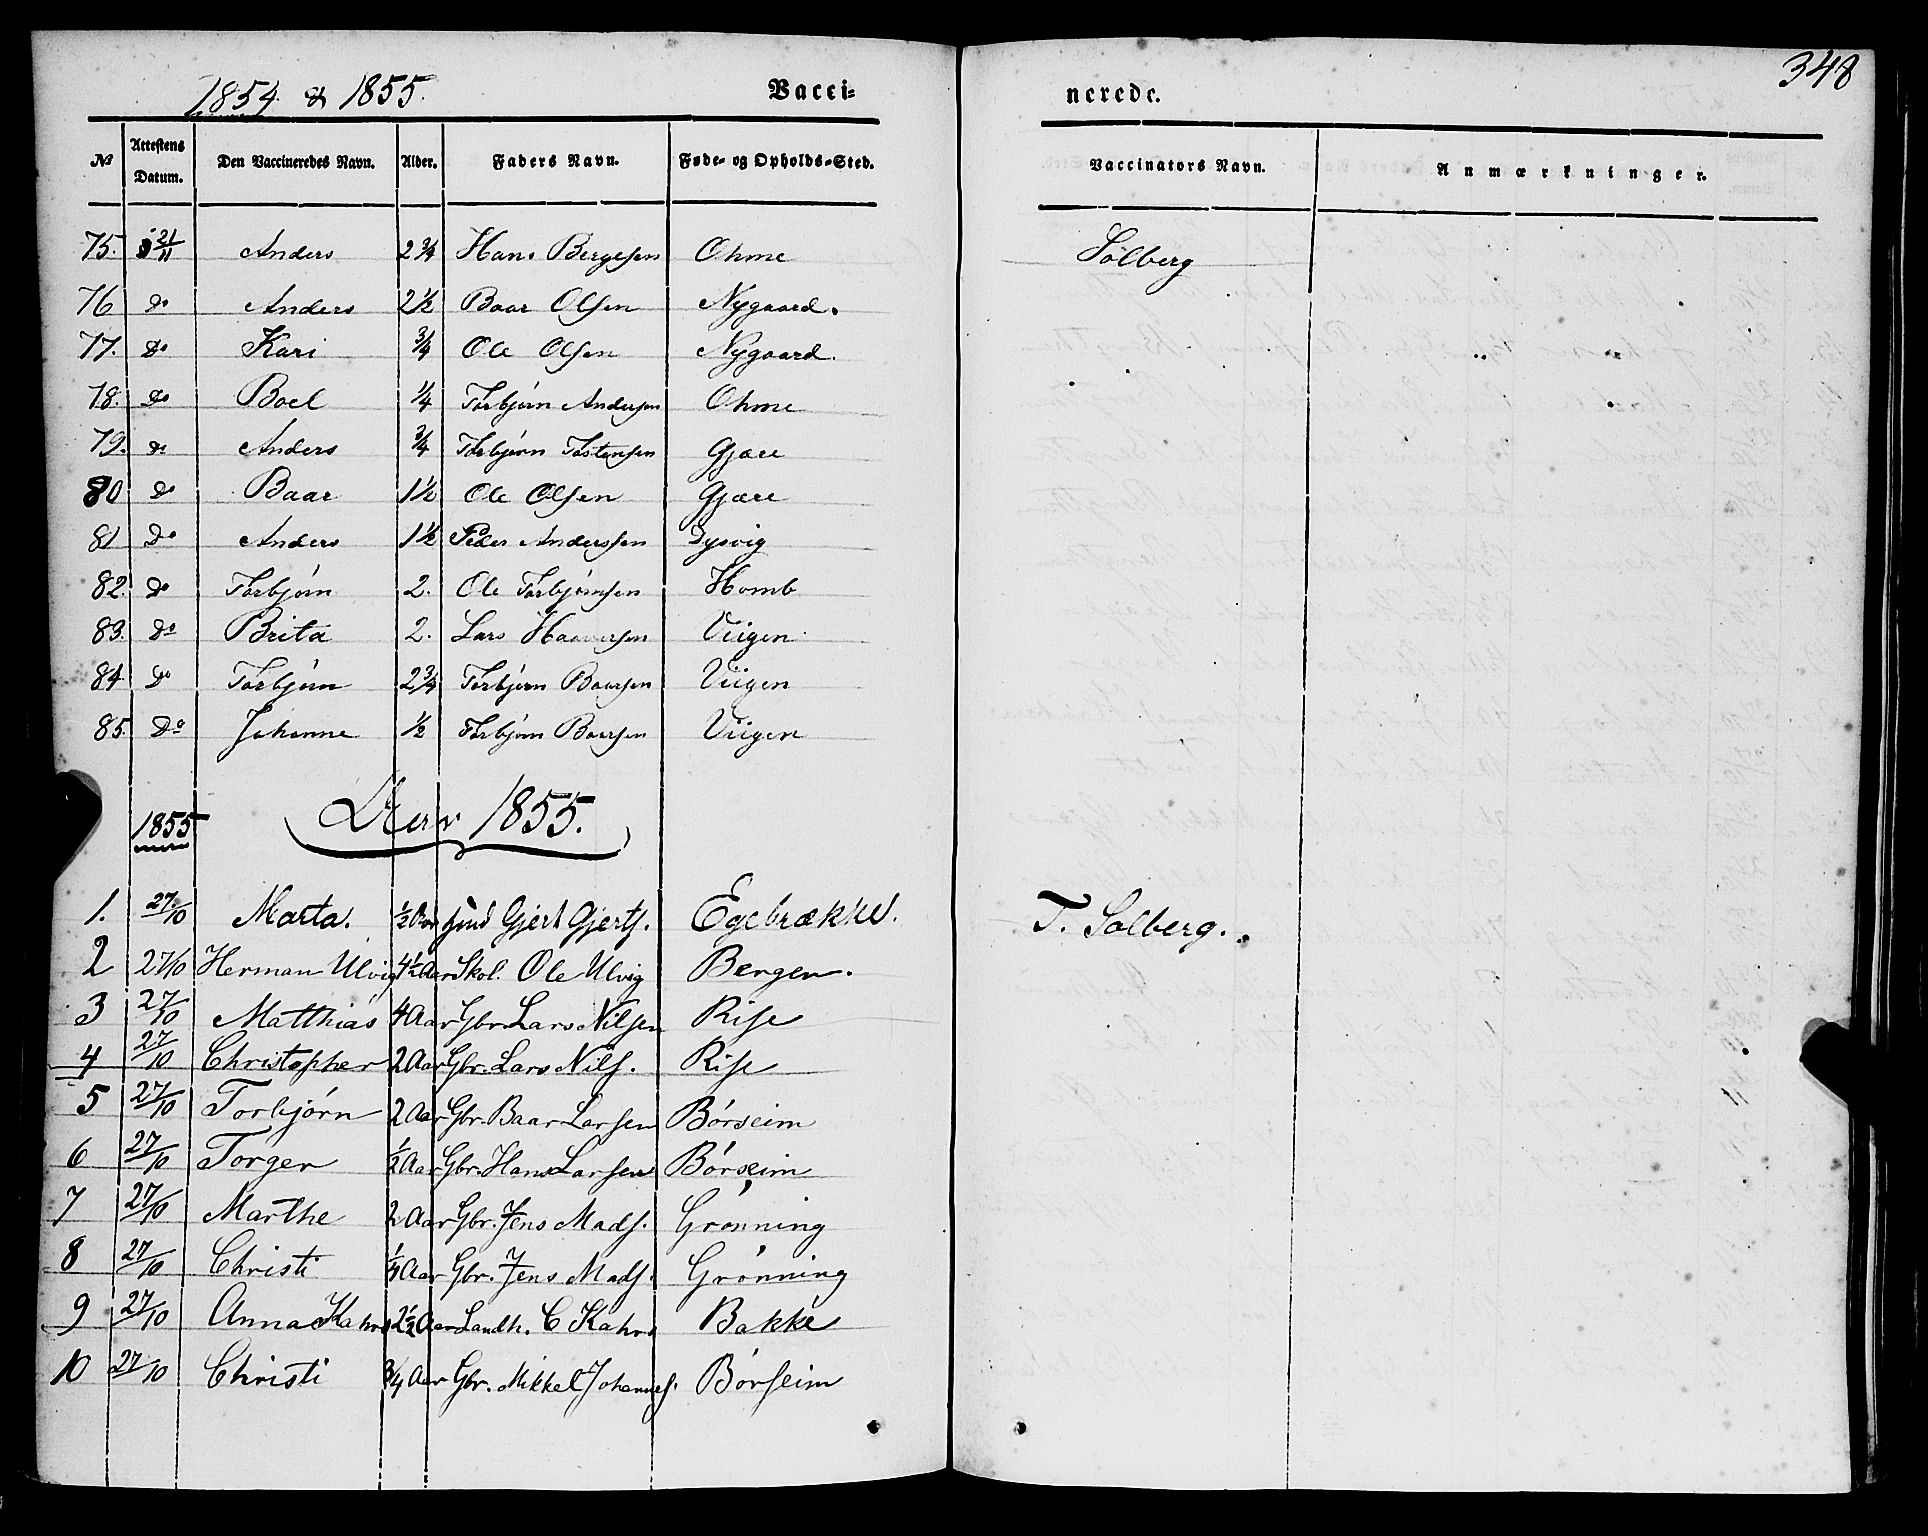 1854 & 1855.
Vacci-
nerede.
348
№ Attestens Datum. Den Vaccineredes Navn. Alder. Faders Navn. Føde- og Opholds-Sted. Vaccinators Navn. Anmærkninger.
75. 21/11 Anders 2 3/4 Hans Bergesen Ohme Sólberg
76 do Anders 2 1/2 Baar Olsen Nygaard.
77. do Kari 3/4 Ole Olsen Nygaard.
78. do Boel 1/4 Torbjørn Andersen Ohme
79. do Anders 3/4 Torbjørn Tostensen Gjære
80 do Baar 1 1/2 Ole Olsen Gjære
81 do Anders 1 1/2 Peder Anderssen Dysvig
82. do Torbjørn 2. Ole Torbjørnsen Homb
83. do Brita 2. Lars Haaversen Viigen
84. do Torbjørn 2 3/4 Torbjørn Baarsen Viigen
85. do Johanne 1/2 Torbjørn Baarsen Viigen
1855 Aar 1855.
1. 27/10 Marta. 1/2 Aar Gjert Gjerts. Egebrække. T. Solberg.
2 27/10 Herman Ulvig 4 1/2 Aar Skol. Ole Ulvig Bergen.
3 27/10 Matthias 4 Aar Gbr. Lars Nilsen Rise
4 27/10 Christopher 2 Aar Gbr. Lars Nils. Rise
5 27/10 Torbjørn 2 Aar Gbr. Baar Larsen Børseim
6 27/10 Torger 1/2 Aar Gbr. Hans Larsen Børseim
7 27/10 Marthe 2 Aar Gbr. Jens Mads. Grønning
8 27/10 Christi Aar Gbr. Jens Mads. Grønning
9 27/10 Anna Kahrs 2 1/2 Aar Landh. C Kahrs Bakke
10 27/10 Christi 3/4 Aar Gbr. Mikkel Johannes. Børseim